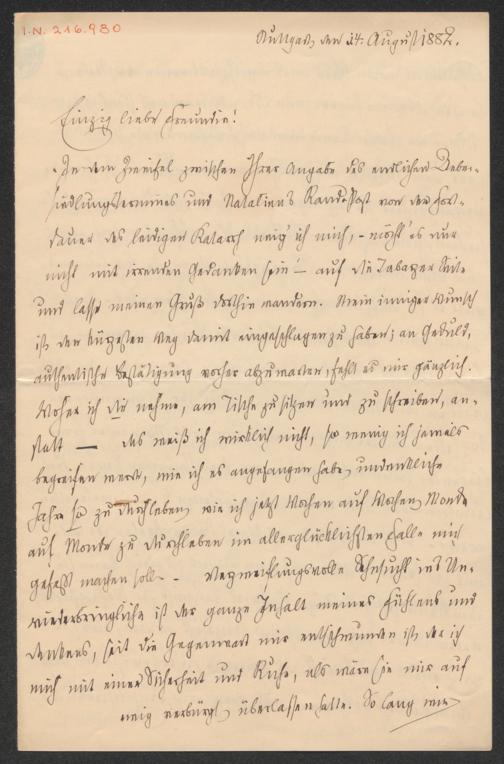 I.N. 216.980
Stuttgart, den 24. August 1882.
Einzig liebe Freundin!
In dem Zweifel zwischen Ihrer Angabe des endlichen Uebersiedlungstermines und Nataliens Rand-Post von der Fort-
dauer des leidigen Katarrh neig' ich mich, – möcht' es nur
nicht mit irrenden Gedanken sein! – auf die Seite
und lasse meinen Gruß dorthin wandern. Mein inniger Wunsch
ist, den kürzesten Weg damit eingeschlagen zu haben; an Geduld,
authentische Bestätigung vorher abzuwarten, fehlt es mir gänzlich.
Woher ich die nehme, am Tische zu sitzen und zu schreiben, an-
statt — das weiß ich wirklich nicht, so wenig ich jemals
begreifen werde, wie ich es angefangen habe, undenkliche
Jahre so zu durchleben, wie ich jetzt Wochen auf Wochen, Monde
auf Monde zu durchleben im allerglücklichsten Falle mich
gefaßt machen soll. – Verzweiflungsvolle Sehnsucht ins Un-
wiederbringliche ist der ganze Inhalt meines Fühlens und
Denkens, seit die Gegenwart mir entschwunden ist, der ich
mich mit einer Sicherheit und Ruhe, als wäre sie mir auf
ewig verbürgt, überlassen hatte. So lang mir